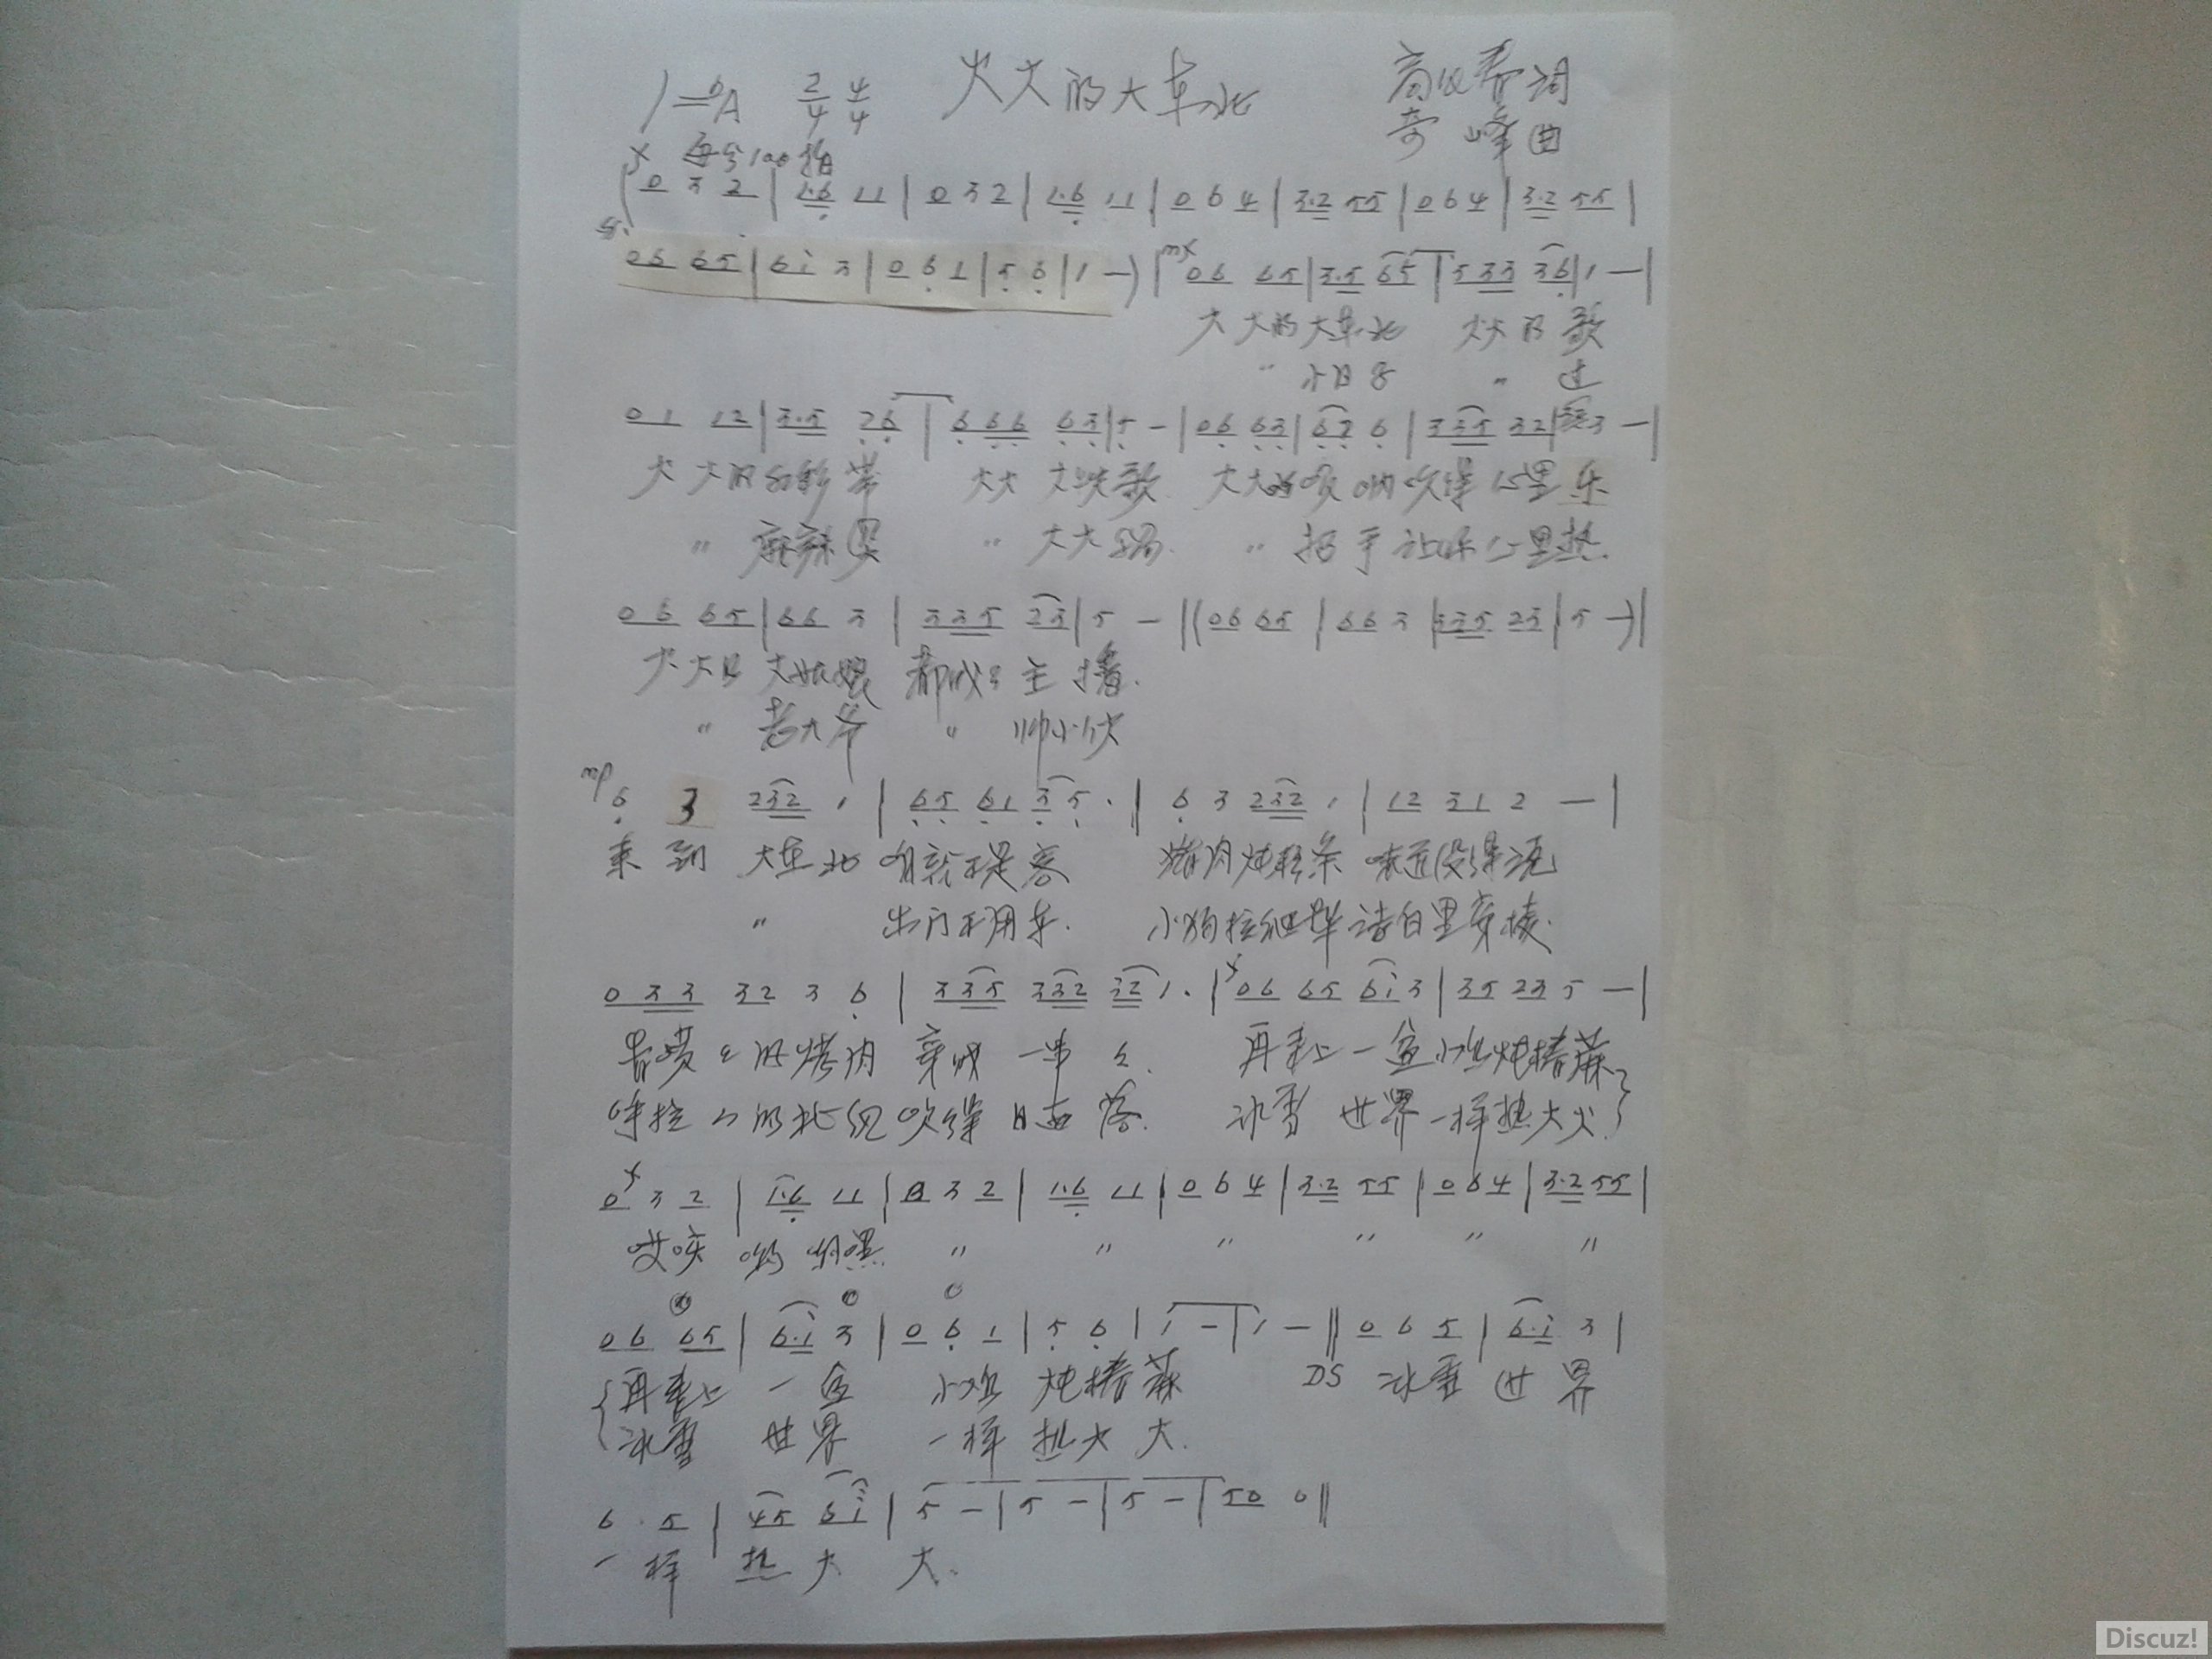 1=♭A 2/4 4/4 火火的大东北 高 春词
奇峰曲
f 每分100拍
0 3 2 | 1·6 11 | 0 3 2 | 1·6 11 | 0 6 4 | 3·2 55 | 0 6 4 | 3·2 55 |
06 65 | 6i 3 | 0 6 1 | 5 6 | 1 —) | mf 06 65 | 3·5 65 | 533 36 | 1 — |
火火的大东北 火火的歌
〃 小日子 〃 过
0 1 12 | 3·5 26 | 666 63 | 5 — | 06 63 | 6 6 | 335 32 | 3 — |
火火的 彩带 火火 秧歌 火火的唢呐吹得心里乐
〃 麻辣 〃 火火锅 〃 招手 心里热.
06 65 | 66 3 | 335 23 | 5 — ‖(06 65 | 66 3 | 335 23 | 5 —)|
火火的大姑娘都成了主播.
〃 老大爷 〃 帅小伙
mp 6 3 232 1 | 65 61 3 5 · ‖ 6 3 232 1 | 12 31 2 — |
来到 大东北 咱就不是客 猪肉炖粉条 味道没得说
〃 出门不用车. 小狗拉爬犁 里穿梭.
0 33 32 3 6 | 335 332 32 1 · | f 06 65 6i 3 | 35 23 5 — |
香喷喷的烤肉 穿成一串串. 再来上一盆小鸡炖榛蘑
呼拉拉的北风吹得日 落. 冰雪世界一样热火火
0 f 3 2 | 1·6 11 | 0 3 2 | 1·6 11 | 0 6 4 | 3·2 55 | 0 6 4 | 3·2 55 |
哎哟 〃 〃 〃 〃 〃 〃
06 65 | 6·i 3 | 0 6 1 | 5 6 | 1 — | 1 — ‖ 0 6 5 | 6·i 3 |
再来上 一盆 小鸡 炖榛蘑 DS 冰雪世界
冰雪 世界 一样热火火.
6 · 5 | 45 6i | 5 — | 5 — | 5 — | 50 0 ‖
一样 热火 火.
Discuz!